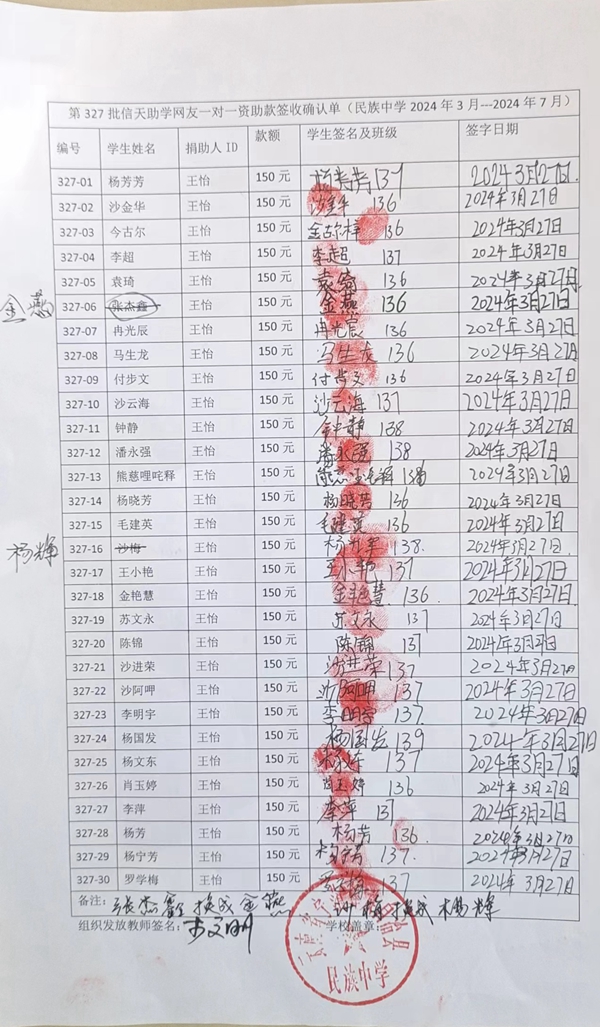 第 327 批信天助学网友一对一资助款签收确认单（民族中学 2024 年 3 月---2024 年 7 月）
编号 学生姓名 捐助人 ID 款额 学生签名及班级 签字日期
327-01 杨芳芳 王怡 150 元 杨芳芳 137 2024年3月27日
327-02 沙金华 王怡 150 元 沙金华 136 2024年3月27日
327-03 今古尔 王怡 150 元 136 2024年3月27日
327-04 李超 王怡 150 元 李超 137 2024年3月27日
327-05 袁琦 王怡 150 元 136 2024年3月27日
金燕 327-06 张杰鑫 王怡 150 元 金燕 136 2024年3月27日
327-07 冉光辰 王怡 150 元 冉光辰 136 2024年3月27日
327-08 马生龙 王怡 150 元 马生龙 136 2024年3月27日
327-09 付步文 王怡 150 元 付步文 136 2024年3月27日
327-10 沙云海 王怡 150 元 沙云海 137 2024年3月27日
327-11 钟静 王怡 150 元 钟静 138 2024年3月27日
327-12 潘永强 王怡 150 元 潘永强 138 2024年3月27日
327-13 熊慈哩咤释 王怡 150 元 2024年3月27日
327-14 杨晓芳 王怡 150 元 杨晓芳 136 2024年3月27日
327-15 毛建英 王怡 150 元 毛建英 136 2024年3月27日
杨辉 327-16 沙梅 王怡 150 元 138. 2024年3月27日
327-17 王小艳 王怡 150 元 王小艳 137 2024年3月27日
327-18 金艳慧 王怡 150 元 金艳慧 136. 2024年3月27日
327-19 苏文永 王怡 150 元 苏文永 137 2024年3月27日
327-20 陈锦 王怡 150 元 陈锦 137 2024年3月27日
327-21 沙进荣 王怡 150 元 沙进荣 137 2024年3月27日
327-22 沙阿呷 王怡 150 元 沙阿呷 137 2024年3月27日
327-23 李明宇 王怡 150 元 李明宇 137. 2024年3月27日
327-24 杨国发 王怡 150 元 杨国发 139 2024年3月27日
327-25 杨文东 王怡 150 元 137 2024年3月27日
327-26 肖玉婷 王怡 150 元 肖玉婷 136 2024年3月27日
327-27 李萍 王怡 150 元 李萍 137 2024年3月27日
327-28 杨芳 王怡 150 元 杨芳 136. 2024年3月27日
327-29 杨宁芳 王怡 150 元 杨宁芳 137. 2024年3月27日
327-30 罗学梅 王怡 150 元 137 2024年3月27日
备注： 张杰鑫换成金燕 沙梅换成杨辉
组织发放教师签名： 学校盖章：
民族中学